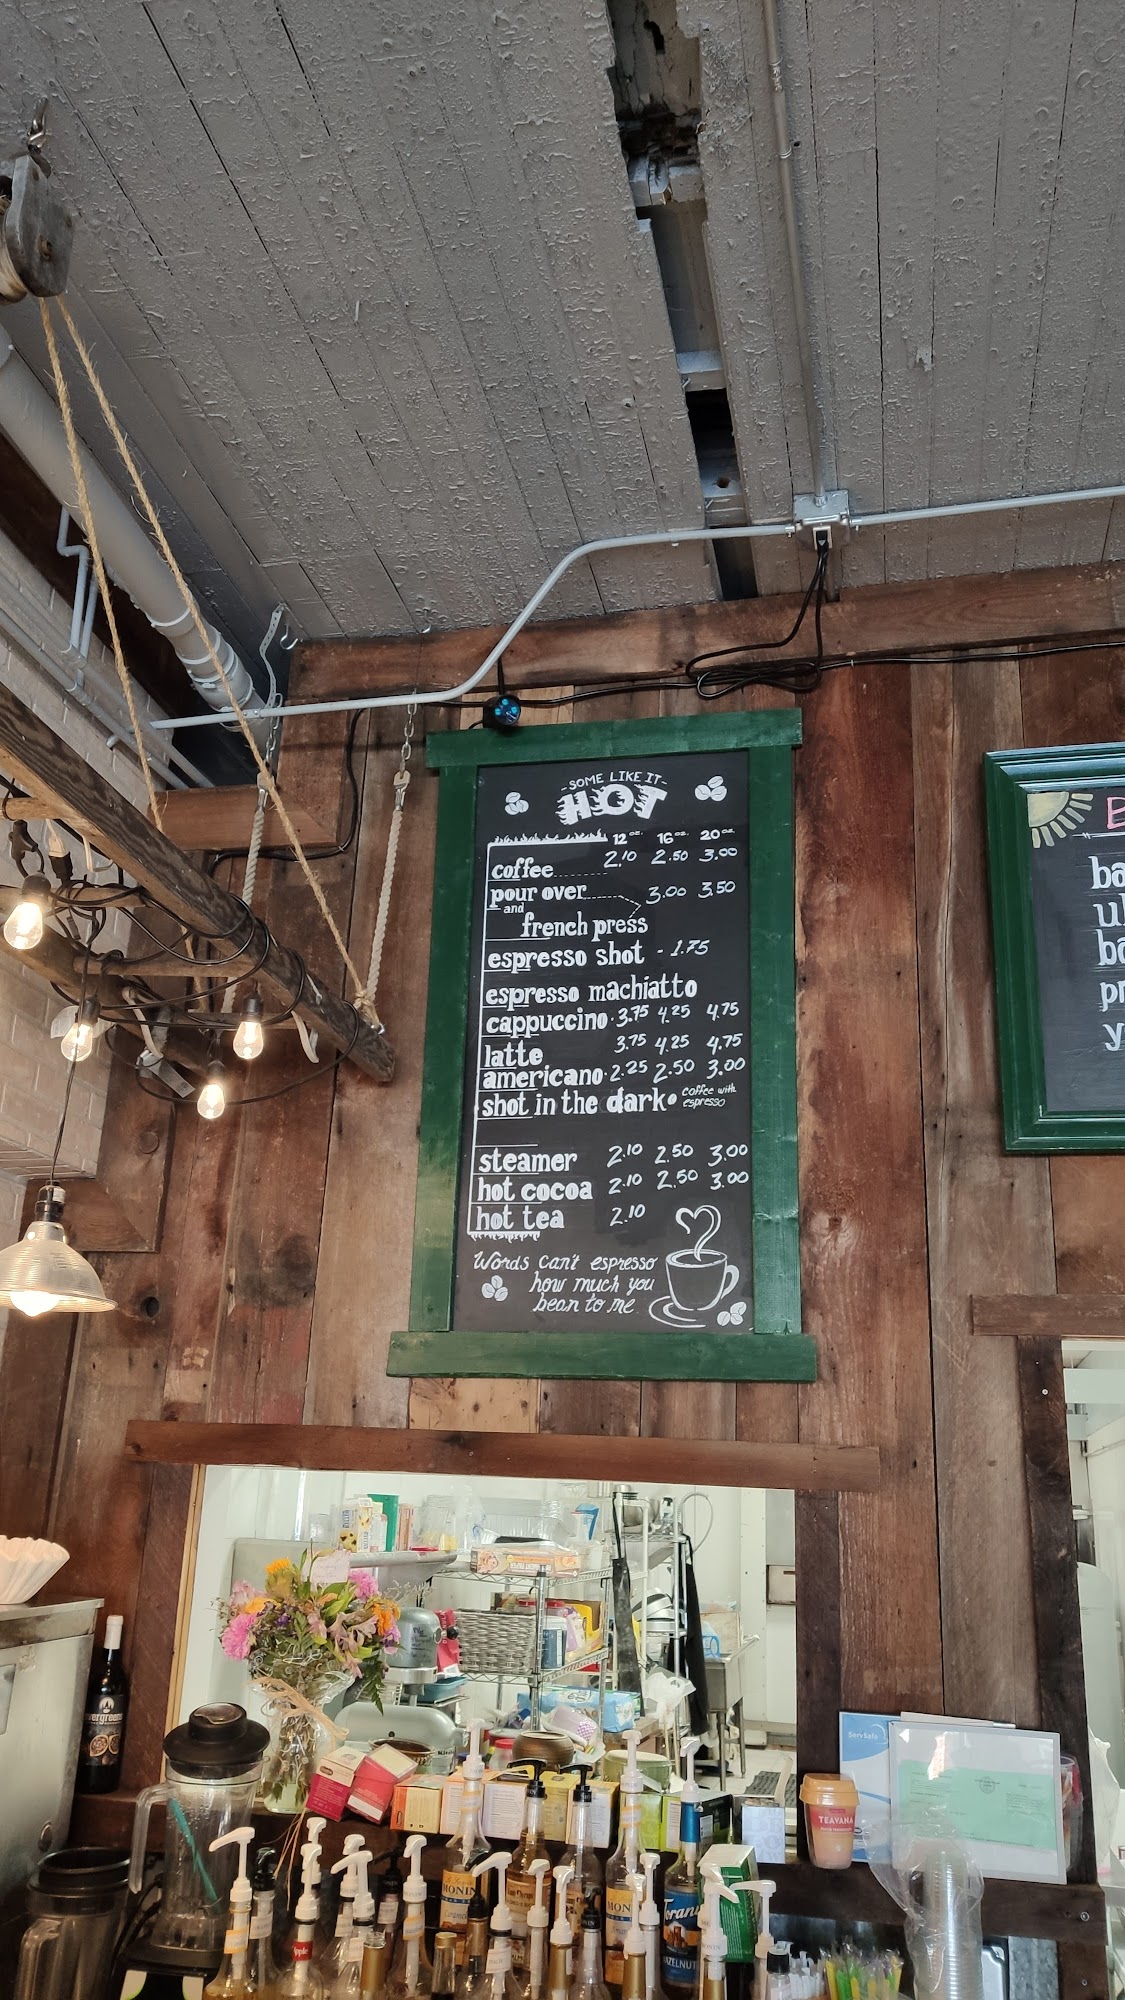 -SOME LIKE IT-
HOT
12 oz. 16 oz. 20 oz.
coffee 2.10 2.50 3.00
pour over 3.00 3.50
and
french press
espresso shot - 1.75
espresso machiatto
cappuccino 3.75 4.25 4.75
latte 3.75 4.25 4.75
americano 2.25 2.50 3.00
shot in the dark coffee with
espresso
steamer 2.10 2.50 3.00
hot cocoa 2.10 2.50 3.00
hot tea 2.10
Words can't espresso
how much you
bean to me
B
ba
ul
ba
pr
y
ServSafe
TEAVANA
MONIN
MONIN
Torani
HAZELNUT
Apple